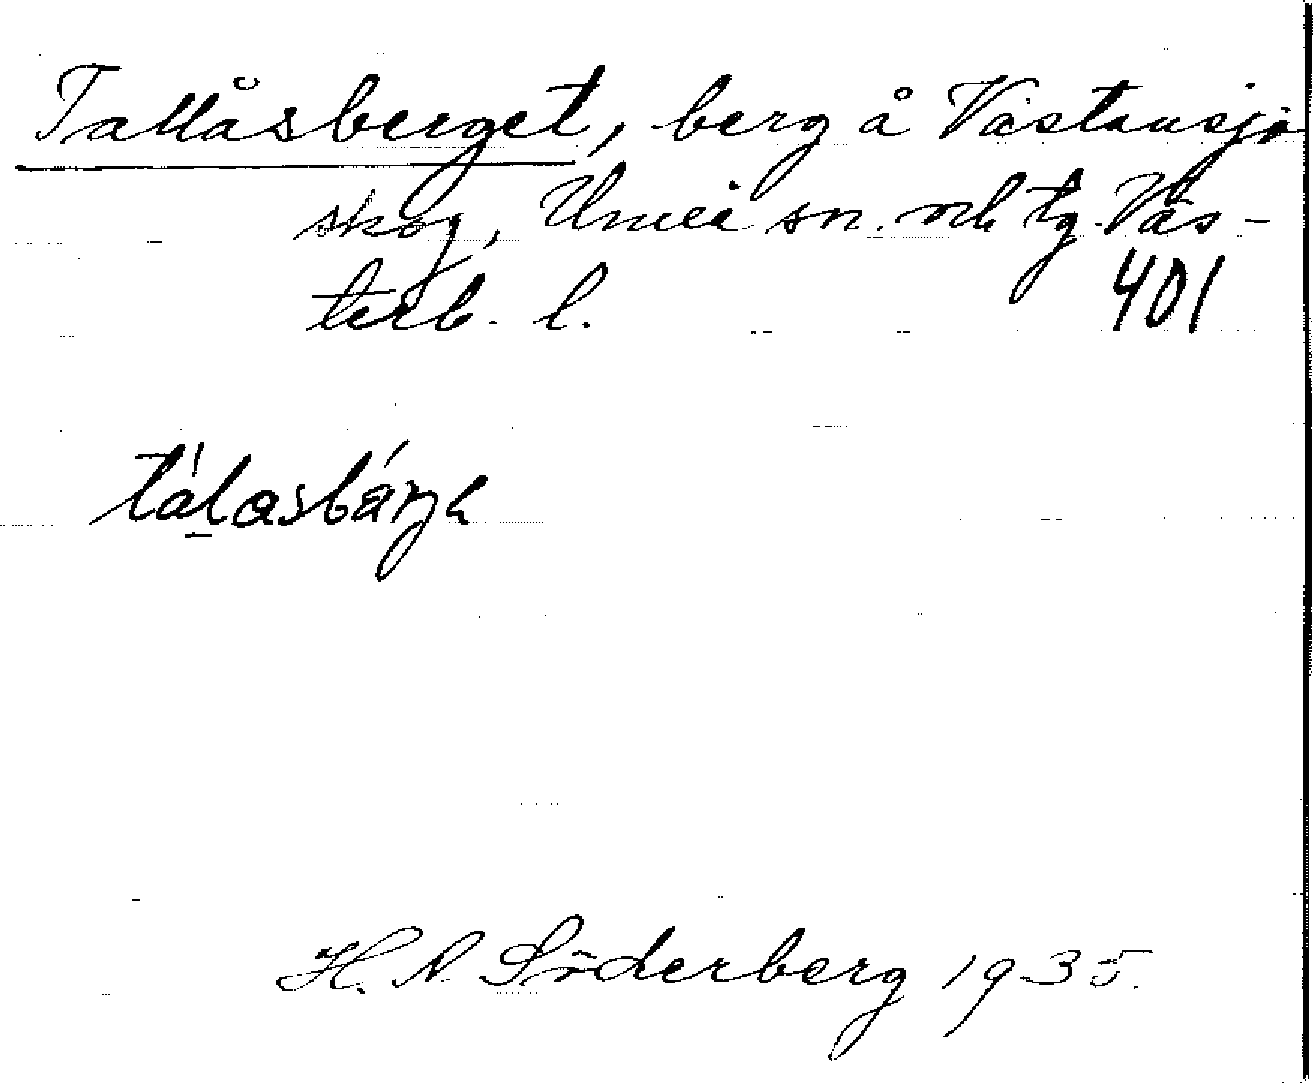 Tallåsberget, berg å Västansjö
skog, Umeå sn. och tg. Väs-
terb. l. 401
tálasbárja
H. A. Söderberg 1935.